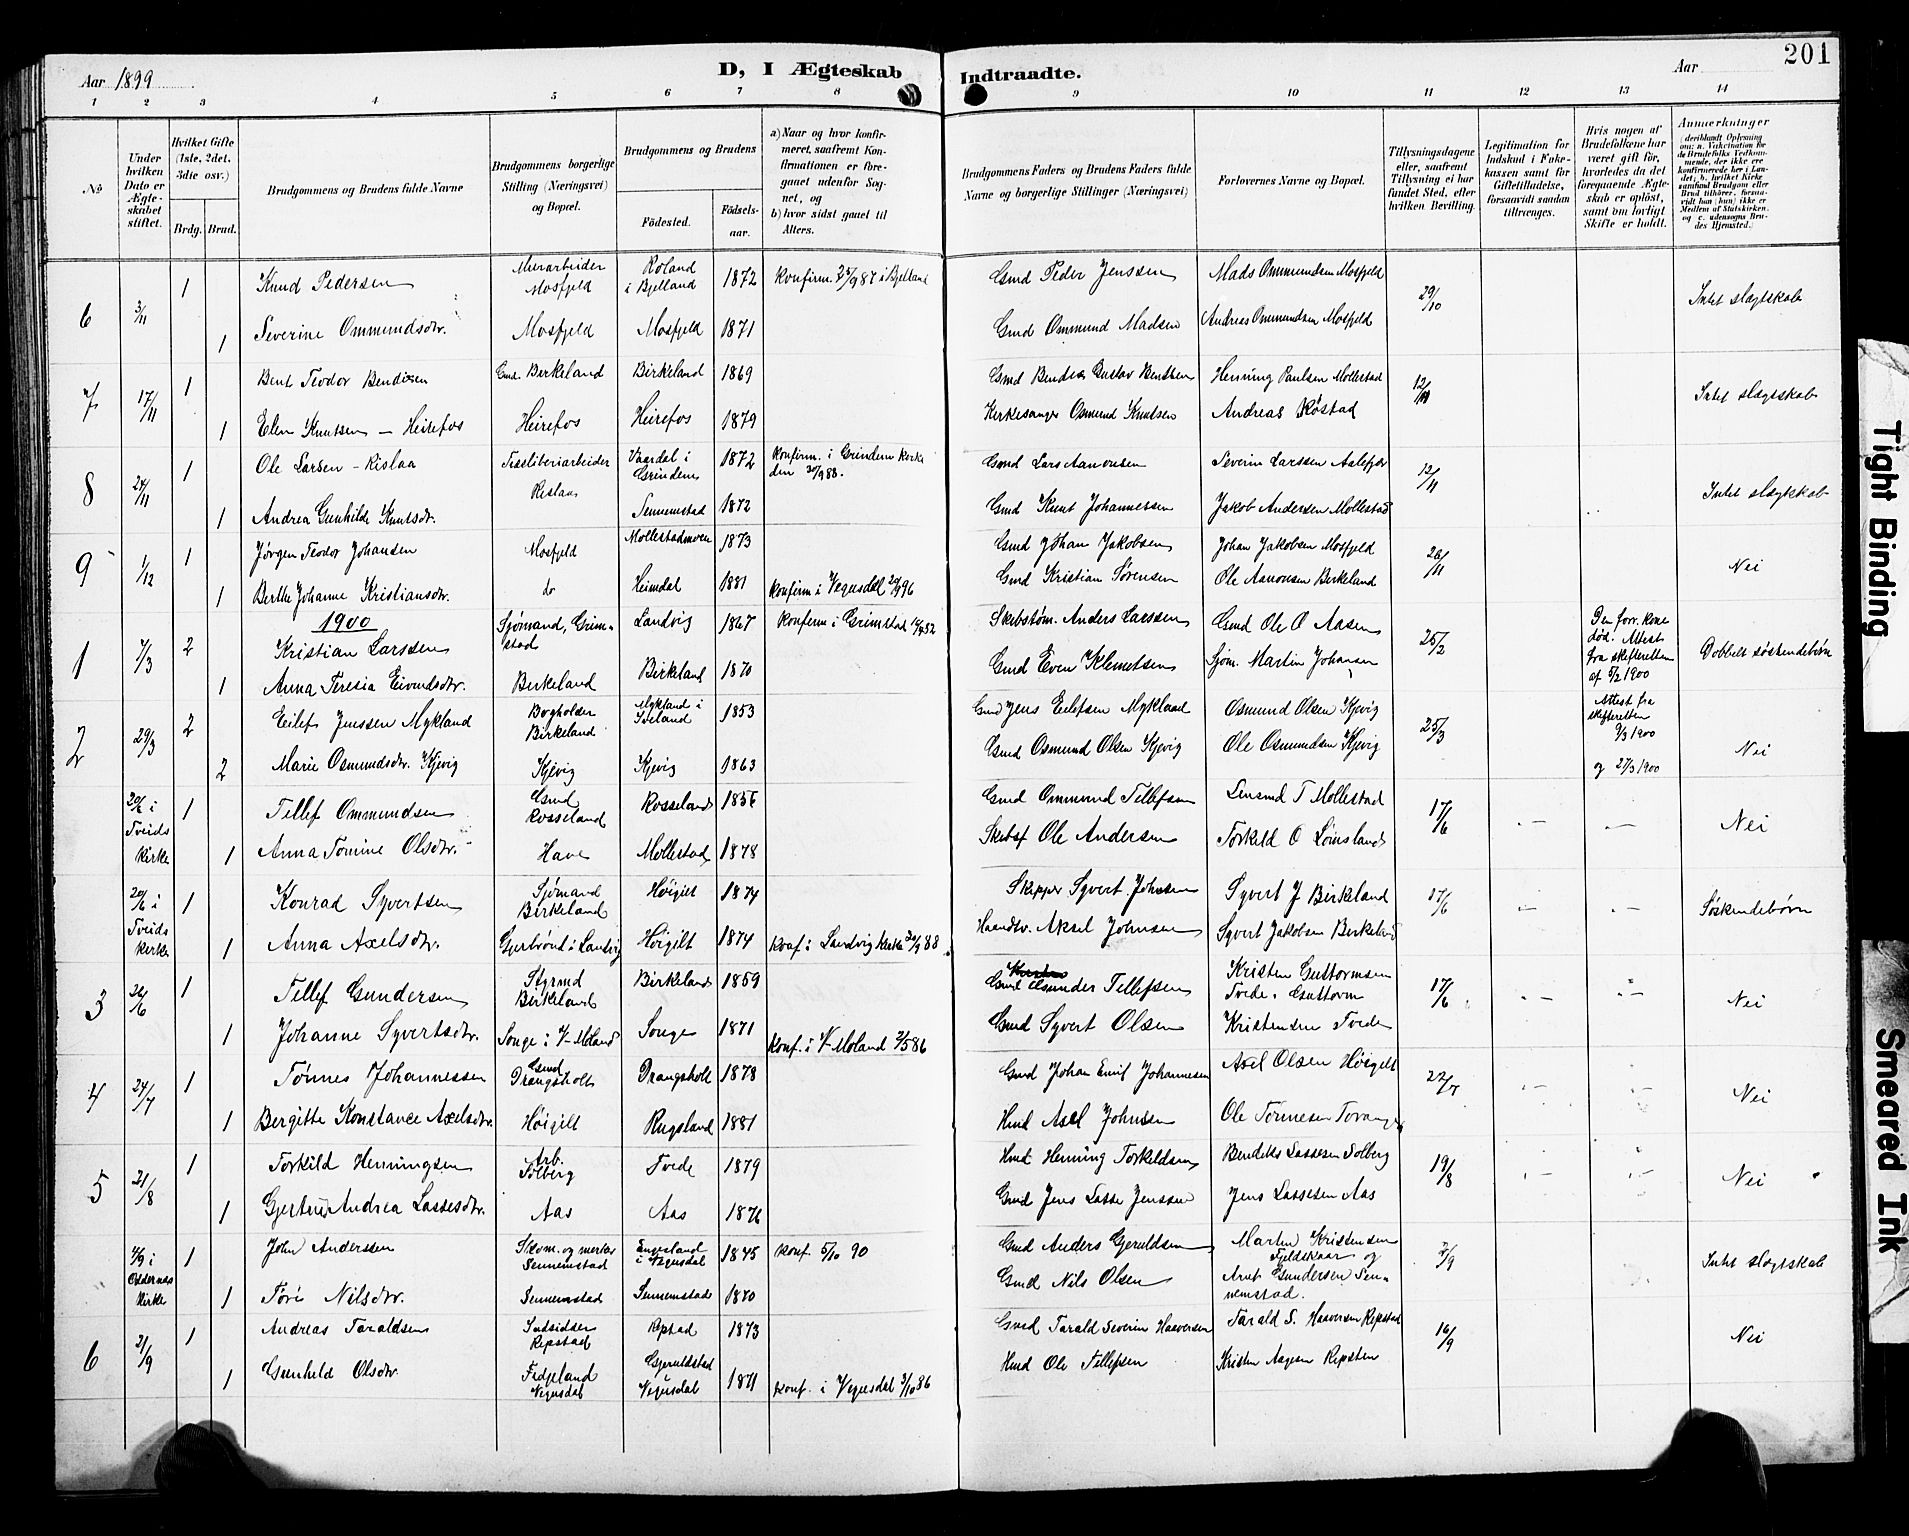 Aar 1899 D, I Ægteskab Indtraadte. Aar 201
1 2 3 4 5 6 7 8 9 10 11 12 13 14
No
Under hvilken Dato er Ægteskabet stiftet.
Hvilket Gifte (1ste, 2det, 3die osv.)
Brdg. Brud.
Brudgommens og Brudens fulde Navne
Brudgommens borgerlige Stilling (Næringsvei) og Bopæl.
Brudgommens og Brudens
Födested.
Födselsaar.
a) Naar og hvor konfirmeret, saafremt Konfirmationen er foregaaet udenfor Sognet, og
b) hvor sidst gaaet til Alters.
Brudgommens Faders og Brudens Faders fulde Navne og borgerlige Stillinger (Næringsvei)
Forlovernes Navne og Bopæl.
Tillysningsdagene eller, saafremt Tillysning ei har fundet Sted, efter hvilken Bevilling.
Legitimation for Indskud i Enkekassen samt for Giftetilladelse, forsaavidt saadan tiltrænges.
Hvis nogen af Brudefolkene har været gift för, hvorledes da det foregaaende Ægteskab er oplöst, samt om lovligt Skifte er holdt.
Anmærkninger
(deriblandt Oplysning om: a. Vaccination for de Brudefolks Vedkommende, der ikke ere konfirmerede her i Landet; b. hvilket Kirkesamfund Brudgom eller Brud tilhörer, forsaavidt han (hun) ikke er Medlem af Statskirken, og c. udensogns Brudes Hjemsted.)
6 3/11 1 Knud Pedersen Murarbeider Mosfjeld Roland i Bjelland 1872 konfirm. 25/9 87 i Bjelland Gmd Peder Jenssen Mads Ommundsen Mosfjeld 29/10 Intet slægtskab
1 Severine Ommundsdtr. Mosfjeld Mosfjeld 1871 Gmd Ommund Madsen Andreas Ommundsen Mosfjeld
7 17/11 1 Bent Teodor Bendixen Gmd. Birkeland Birkeland 1869 Gmd Bendix Gustav Benthsen Henning Paulsen Mollestad 12/11 Intet slægtskab
1 Elen Knutsen - Heirefos Heirefos Heirefos 1879 Kirkesanger Osmund Knutsen Andreas Røstad
8 24/11 1 Ole Larsen - Rislaa Træsliberiarbeider Rislaa Vaardal i Grindem 1872 konfirm. i Grindem kirke den 30/9 88. Gmd Lars Aanonsen Severin Larssen Aalefjær 12/11 Intet slægtskab
1 Andrea Gunhilde Knutsdtr. Sennumstad 1872 Gmd Knut Johannessen Jakob Andersen Mollestad
9 1/12 1 Jørgen Teodor Johansen Mosfjeld Mollestadmoen 1873 Gmd Johan Jakobsen Johan Jakobsen Mosfjeld 26/11 Nei
1 Berthe Johanne Kristiansdtr. do Heimdal 1881 konfirm i Vegusdal 20/9 96 Gmd Kristian Sørensen Ole Aanonsen Birkeland
1900
1 7/3 2 Kristian Larssen Sjømand, Grimstad Landvig 1867 konfirm i Grimstad Skibstøm. Anders Larssen Gmd Ole O Aasen 25/2 Den forr. kone død. Attest fra skifteretten af 5/2 1900 Dobbelt søskendebørn
1 Anna Teresia Eivindsdtr. Birkeland Birkeland 1870 Gmd Even Klemetsen Sjøm. Martin Johansen
2 29/3 2 Eilef Jenssen Mykland Bogholder Birkeland Mykland i Iveland 1853 Gmd Jens Eilefsen Mykland Osmund Olsen Kjevig 25/3 Attest fra skifteretten 9/3 1900 Nei
2 Marie Osmundsdtr. Kjevig Kjevig Kjevig 1863 Gmd Osmund Olsen Kjevig Ole Osmundsen Kjevig og 27/3 1900
20/6 i Tveids kirke 1 Tellef Ommundsen Gmd Rosseland Rosseland 1856 Gmd Ommund Tellefsen Lensmd T Mollestad 17/6 Nei
1 Anna Tomine Olsdtr. Have Mollestad 1878 Skibsf Ole Andersen Torkild O Lömsland
20/6 i Tveids kirke 1 Konrad Syvertsen Sjømand Birkeland Høigilt 1874 Skipper Syvert Johnsen Syvert J Birkeland 17/6 Søskendebørn
1 Anna Axelsdtr. Gjerbrønd i Landvig Høigilt 1874 konf i Landvig kirke 30/9 88. Haandv. Aksel Johnsen Syvert Jakobsen Birkeland
3 26/6 1 Tellef Gundersen Styrmd Birkeland Birkeland 1859 Gmd Gunder Tellefsen Kristen Guttormsen Tvede. Guttorm 17/6 Nei
1 Johanne Syvertsdtr. Songe i V-Moland Songe 1871 konf. i V-Moland 2/5 86 Gmd Syvert Olsen Kristensen Tvede
4 24/7 1 Tønnes Johannessen Gmd Drangsholt Drangsholt 1878 Gmd Johan Emil Johannesen Axel Olsen Høigilt 22/7 Nei
1 Bergitte Konstance Axelsdtr. Høigilt Rugsland 1881 Hmd Axel Johnsen Ole Tönnesen
5 21/8 1 Torkild Henningsen Arb. Solberg Tvede 1879 Hmd Henning Torkeldsen Bendiks Lassesen Solberg 19/8 Nei
1 Gjertrud Andrea Lassesdtr. Aas Aas 1876 Gmd Jens Lasse Jenssen Jens Lassesen Aas
4/9 i kirke 1 John Anderssen Skom. og Sennumstad Engesland i Vegusdal 1845 konf 5/10 90 Gmd Anders Gjeruldsen Marten Kristensen Fjeldskaar og 2/9 Intet slægtskab
1 Tore Nilsdtr. Sennumstad Sennumstad 1870 Gmd Nils Olsen Arnt Gundersen Sennumstad.
6 21/9 1 Andreas Taraldsen Indsidder Repstad Repstad 1873 Gmd Tarald Severin Haaversen Tarald S. Haaversen Repstad 16/9 Nei
1 Gunhild Olsdtr. Fidjeland Vegusdal Gjeruldstad i Vegusdal 1871 konf. i Vegusdal 3/10 86 Hmd Ole Tellefsen Kristen Aagesen Repsten
Tight Binding
Smeared Ink